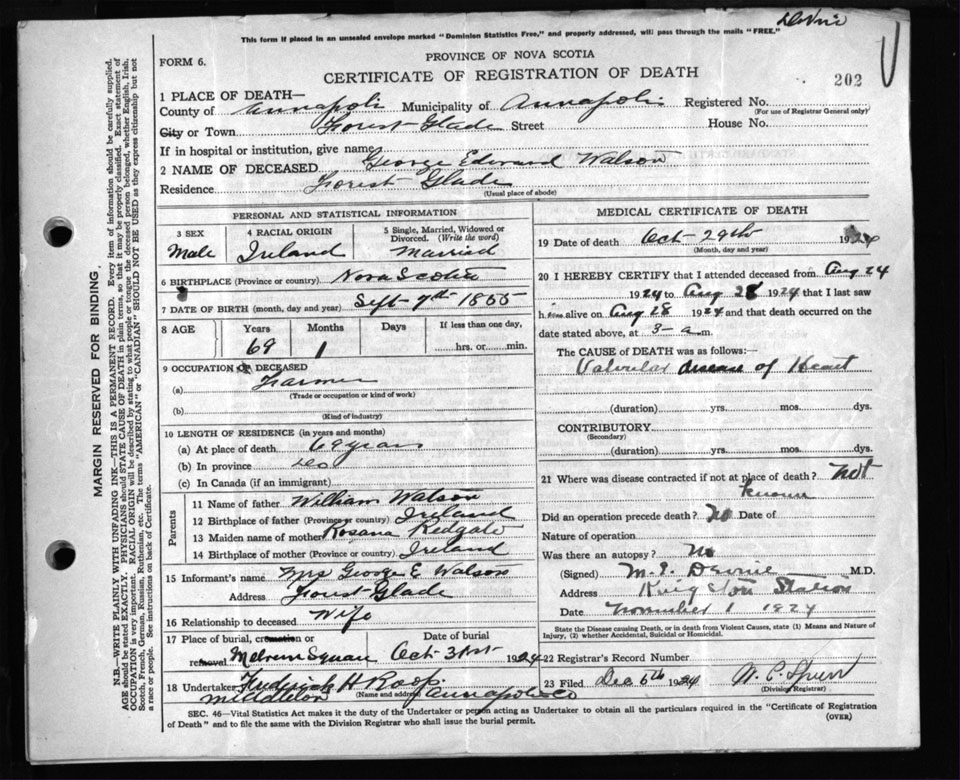 Devine
This form if placed in an unsealed envelope marked "Dominion Statistics Free," and properly addressed, will pass through the mails "FREE."
FORM 6.
PROVINCE OF NOVA SCOTIA
CERTIFICATE OF REGISTRATION OF DEATH
202
1 PLACE OF DEATH—
County of Annapolis Municipality of Annapolis Registered No.
(For use of Registrar General only)
City or Town Forest Glade Street House No.
If in hospital or institution, give name
2 NAME OF DECEASED George Edward Watson
Residence Forest Glade
(Usual place of abode)
PERSONAL AND STATISTICAL INFORMATION
3 SEX
Male
4 RACIAL ORIGIN
Ireland
5 Single, Married, Widowed or Divorced. (Write the word)
Married
6 BIRTHPLACE (Province or country) Nova Scotia
7 DATE OF BIRTH (month, day and year) Sept 7th 1855
8 AGE
Years
69
Months
1
Days
If less than one day,
hrs. or min.
9 OCCUPATION OF DECEASED
(a) Farmer
(Trade or occupation or kind of work)
(b)
(Kind of industry)
10 LENGTH OF RESIDENCE (in years and months)
(a) At place of death 69 years
(b) In province do
(c) In Canada (if an immigrant)
Parents
11 Name of father William Watson
12 Birthplace of father (Province or country) Ireland
13 Maiden name of mother Rosana Redgate
14 Birthplace of mother (Province or country) Ireland
15 Informant's name Mrs George E Watson
Address Forest Glade
16 Relationship to deceased Wife
17 Place of burial, cremation or
removal Melvern Square
Date of burial
Oct 31st 1924
18 Undertaker Frederick H Roop
(Name and address)
Middleton Annapolis Co
MEDICAL CERTIFICATE OF DEATH
19 Date of death Oct 29th 1924
(Month, day and year)
20 I HEREBY CERTIFY that I attended deceased from Aug 24
1924 to Aug 28 1924 that I last saw
h im alive on Aug 28 1924 and that death occurred on the
date stated above, at 3 a m.
The CAUSE OF DEATH was as follows:—
Valvular disease of Heart
(duration) yrs. mos. dys.
CONTRIBUTORY
(Secondary)
(duration) yrs. mos. dys.
21 Where was disease contracted if not at place of death? Not
known
Did an operation precede death? No Date of
Nature of operation
Was there an autopsy? No
(Signed) Devine M.D.
Address Kingston Station
Date November 1 1924
State the Disease causing Death, or in death from Violent Causes, state (1) Means and Nature of Injury, (2) whether Accidental, Suicidal or Homicidal.
22 Registrar's Record Number
23 Filed Dec 6th 1924
(Division Registrar)
SEC. 46—Vital Statistics Act makes it the duty of the Undertaker or person acting as Undertaker to obtain all the particulars required in the "Certificate of Registration
of Death" and to file the same with the Division Registrar who shall issue the burial permit.
(OVER)
MARGIN RESERVED FOR BINDING.
N.B.—WRITE PLAINLY WITH UNFADING INK—THIS IS A PERMANENT RECORD. Every item of information should be carefully supplied.
AGE should be stated EXACTLY. PHYSICIANS should STATE CAUSE OF DEATH in plain terms, so that it may be properly classified. Exact statement of
OCCUPATION is very important. RACIAL ORIGIN will be described by stating to what people or tongue the deceased person belonged, whether English, Irish,
Scotch, French, German, Russian, Ruthenian, etc. The terms "AMERICAN" or "CANADIAN" SHOULD NOT BE USED as they express citizenship but not
a race or people. See instructions on back of Certificate.